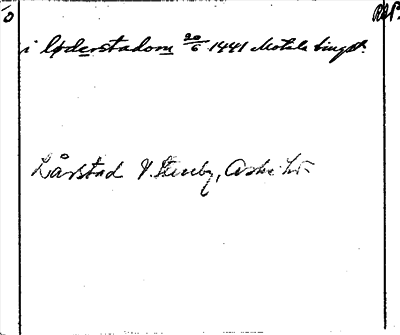 RAP.
i Löderstadom 20/6 1441 Motala tingst.
Lårstad V. Stenby, Aska hd